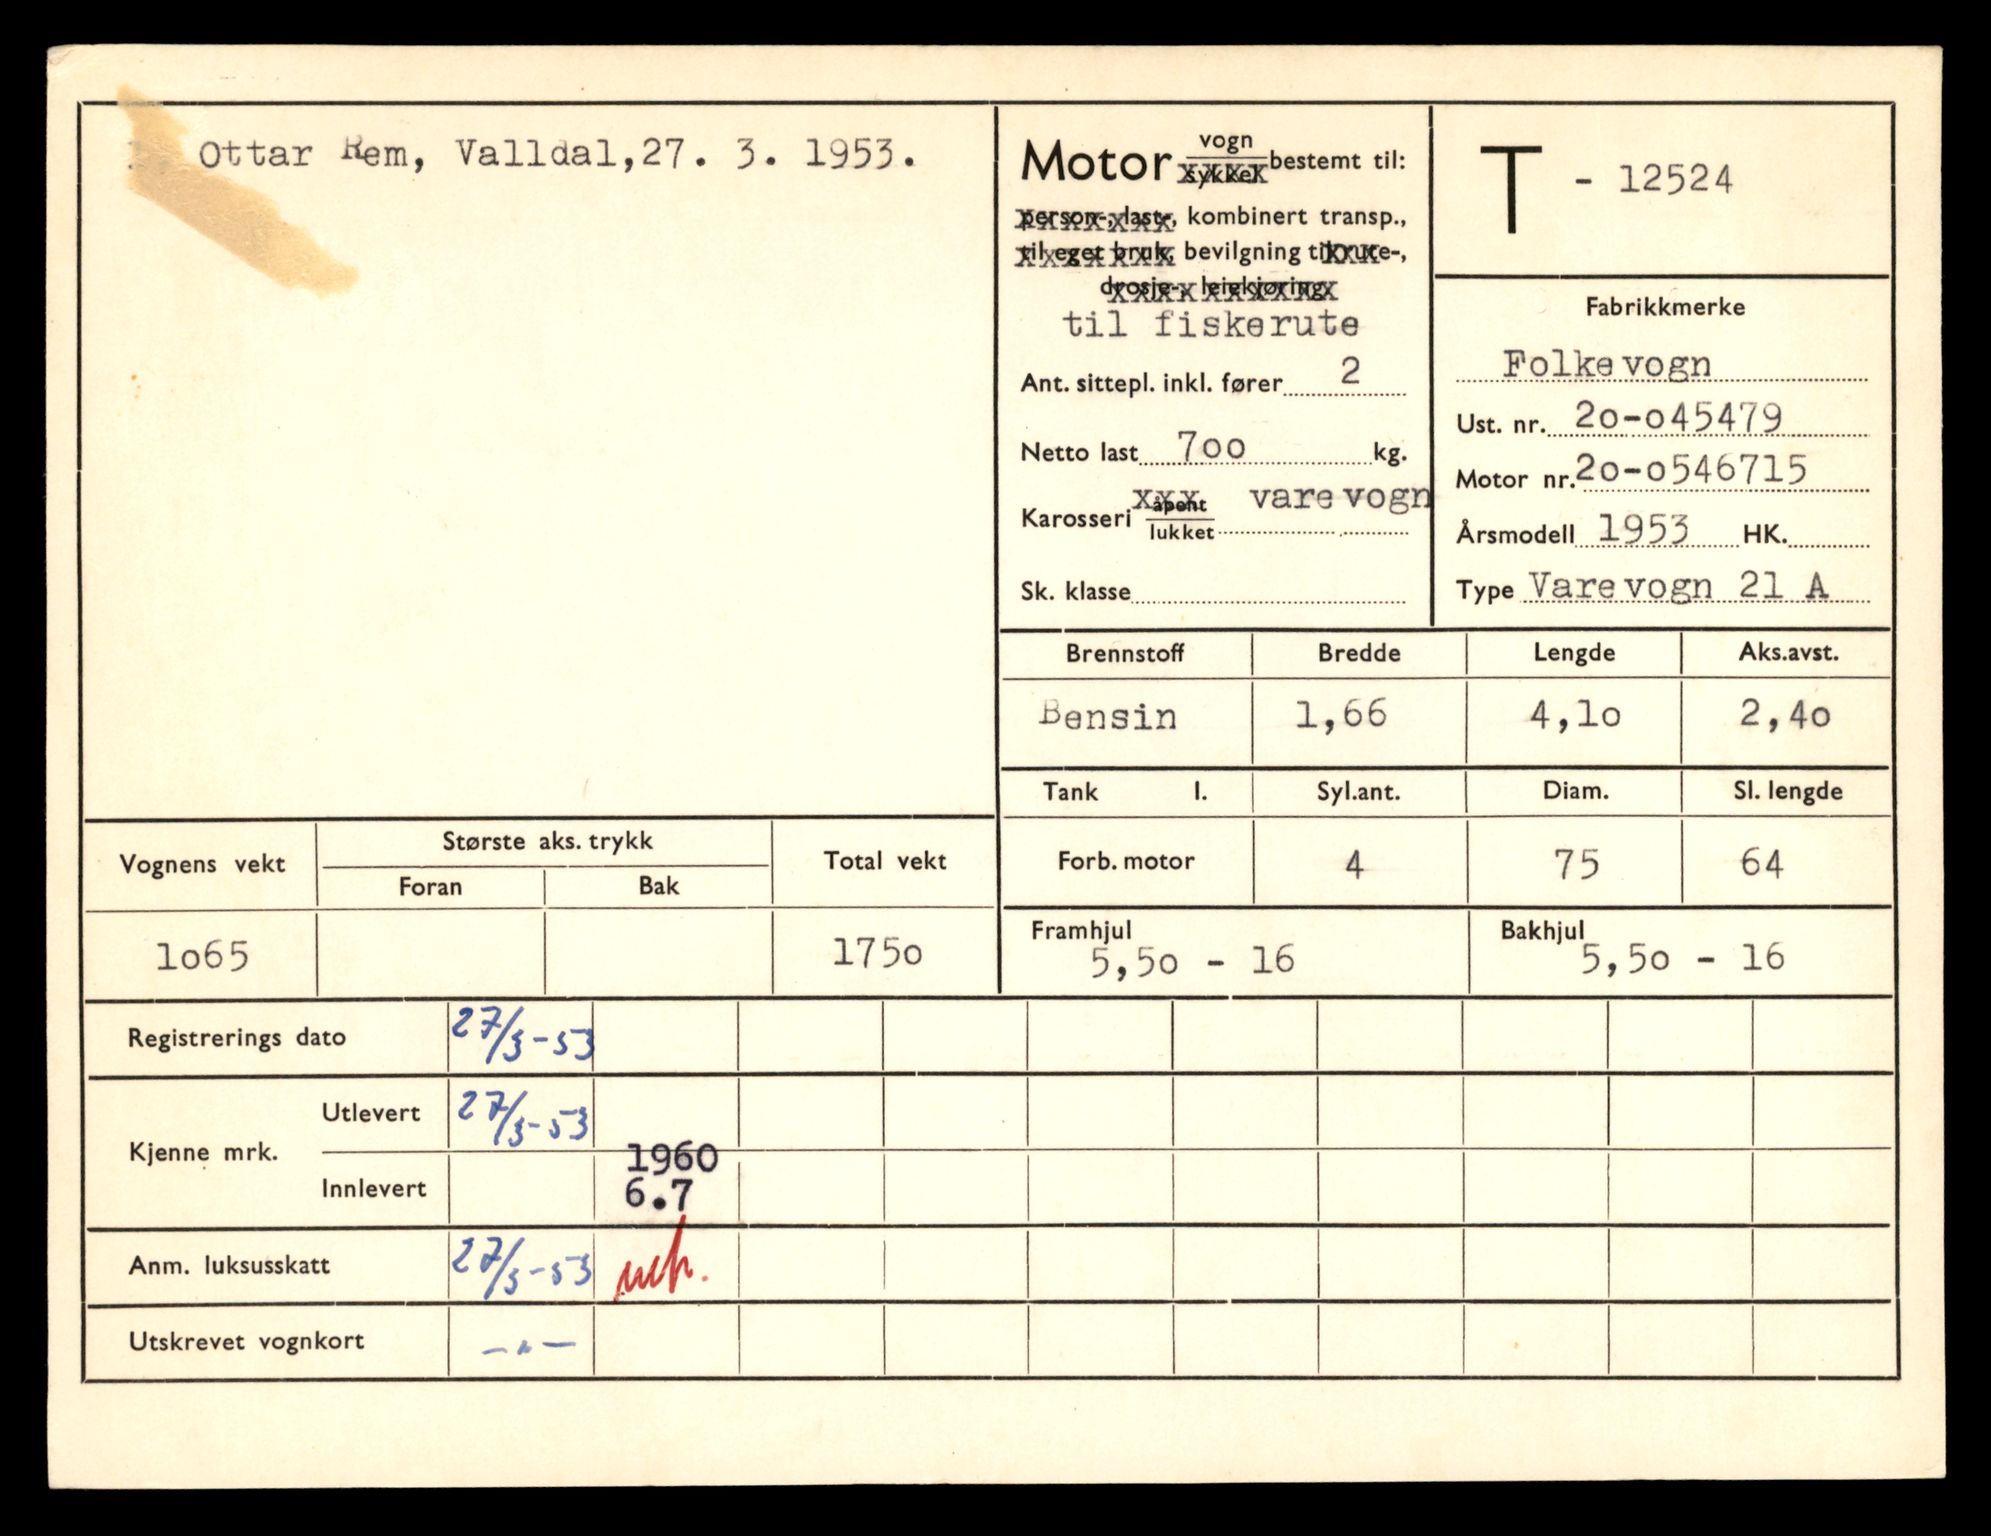 Ottar Rem, Valldal, 27. 3. 1953.
Motor vogn/sykkel bestemt til:
person-, last-, kombinert transp.,
til eget bruk, bevilgning til rute-,
drosje-, leiekjøring
til fiskerute
Ant. sittepl. inkl. fører 2
Netto last 7oo kg.
Karosseri åpent/lukket varevogn
Sk. klasse
T - 12524
Fabrikkmerke
Folkevogn
Ust. nr. 2o-o45479
Motor nr. 2o-o546715
Årsmodell 1953 HK.
Type Varevogn 21 A
Brennstoff Bredde Lengde Aks.avst.
Bensin 1,66 4,1o 2,4o
Tank l. Syl.ant. Diam. Sl. lengde
Forb. motor 4 75 64
Framhjul Bakhjul
5,5o - 16 5,5o - 16
Vognens vekt Største aks. trykk Total vekt
Foran Bak
1o65 175o
Registrerings dato 27/3-53
Kjenne mrk. Utlevert 27/3-53
1960
Innlevert 6.7
Anm. luksusskatt 27/3-53
Utskrevet vognkort —"—